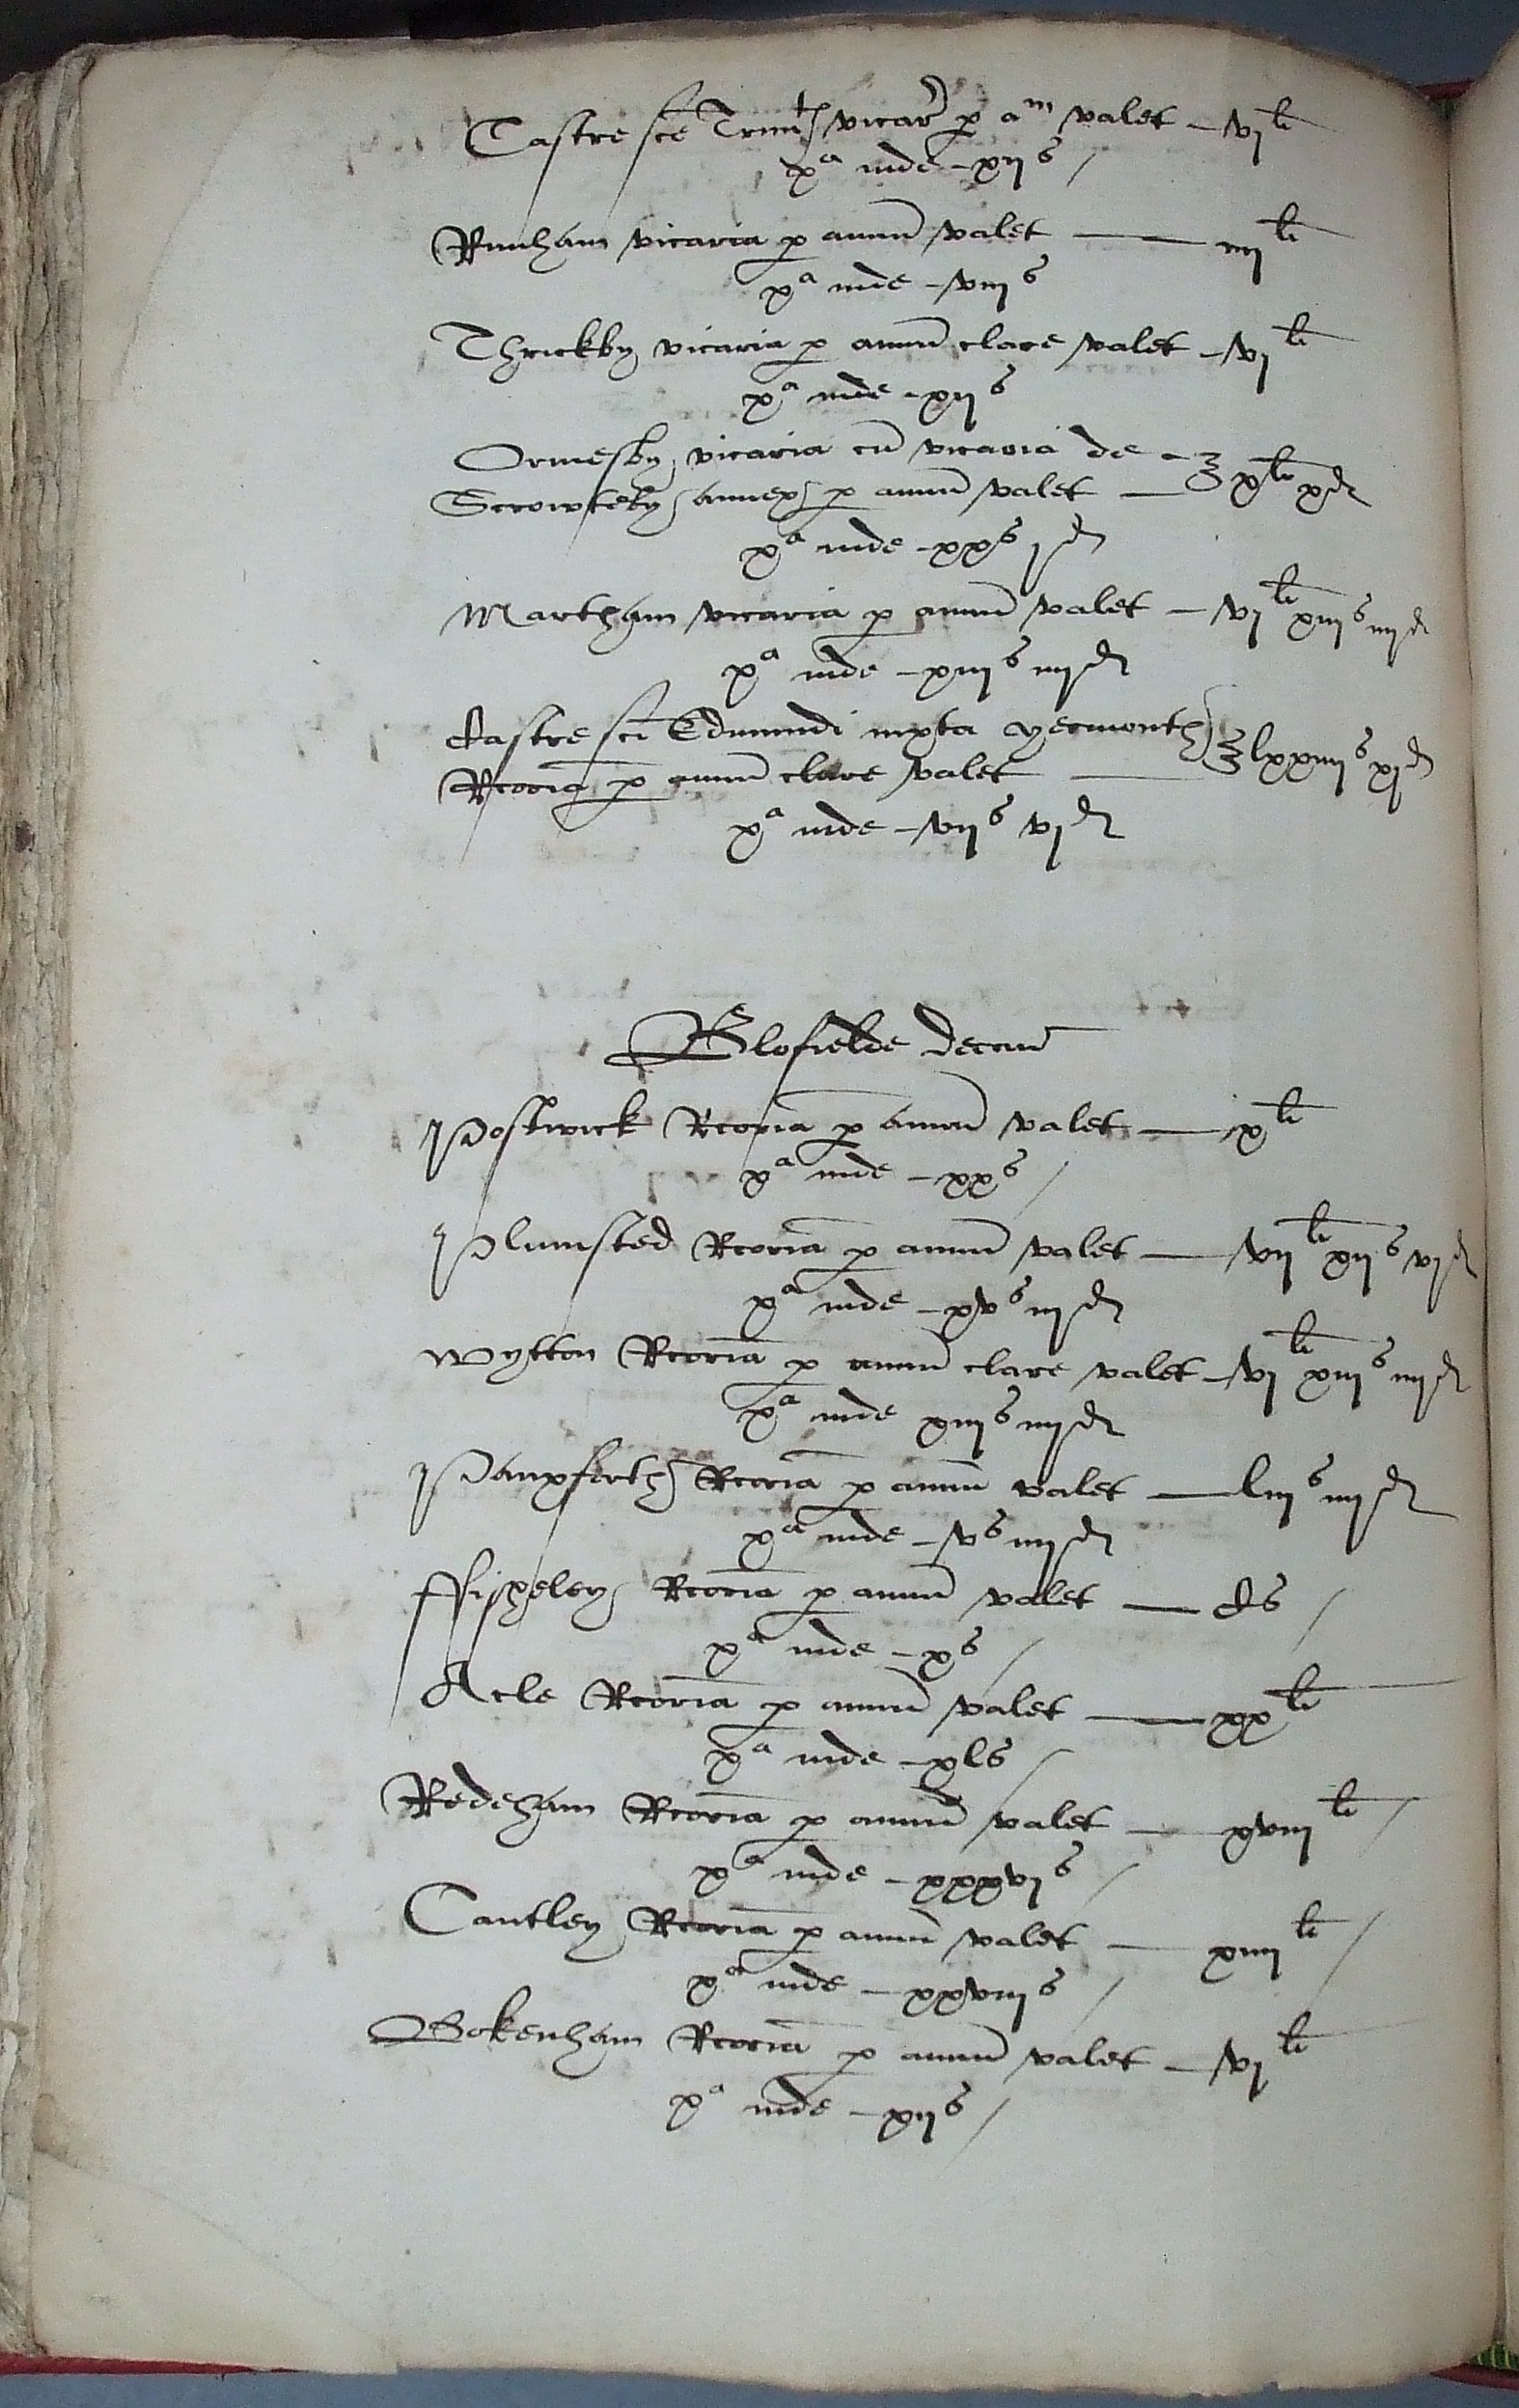 Castre sce Trinit vicar p am valet – vj li
xa inde – xij s
Runham vicaria p annu valet — iiij li
xa inde – viij s
Thrickby vicaria p annu clare valet – vj li
xa inde – xij s
Ormesby vicaria cu vicaria de –
Scrowteby annex p annu valet — x li x d
xa inde – xx s j d
Martham vicaria p annu valet – vj li xiij s iiij d
xa inde – xiij s iiij d
Castre sci Edmundi iuxta yermouth
Rcoria p annu clare valet — lxxiiij s xj d
xa inde – vij s vj d
Blofielde decan
Postwick Rcoria p annu valet — x li
xa inde – xx s
Plumsted Rcoria p annu valet — vij li xij s vj d
xa inde – xv s iij d
wytton Rcoria p annu clare valet – vj li xiij s iiij d
xa inde xiij s iiij d
Panxforth Rcoria p annu valet — liij s iiij d
xa inde – v s iiij d
Rcoria p annu valet — C s
xa inde – x s
Acle Rcoria p annu valet — xx li
xa inde – xl s
Redeham Rcoria p annu valet — xviij li
xa inde – xxxvj s
Cantley Rcoria p annu valet — xiiij li
xa inde – xxviij s
Bokenham Rcoria p annu valet – vj li
xa inde – xij s